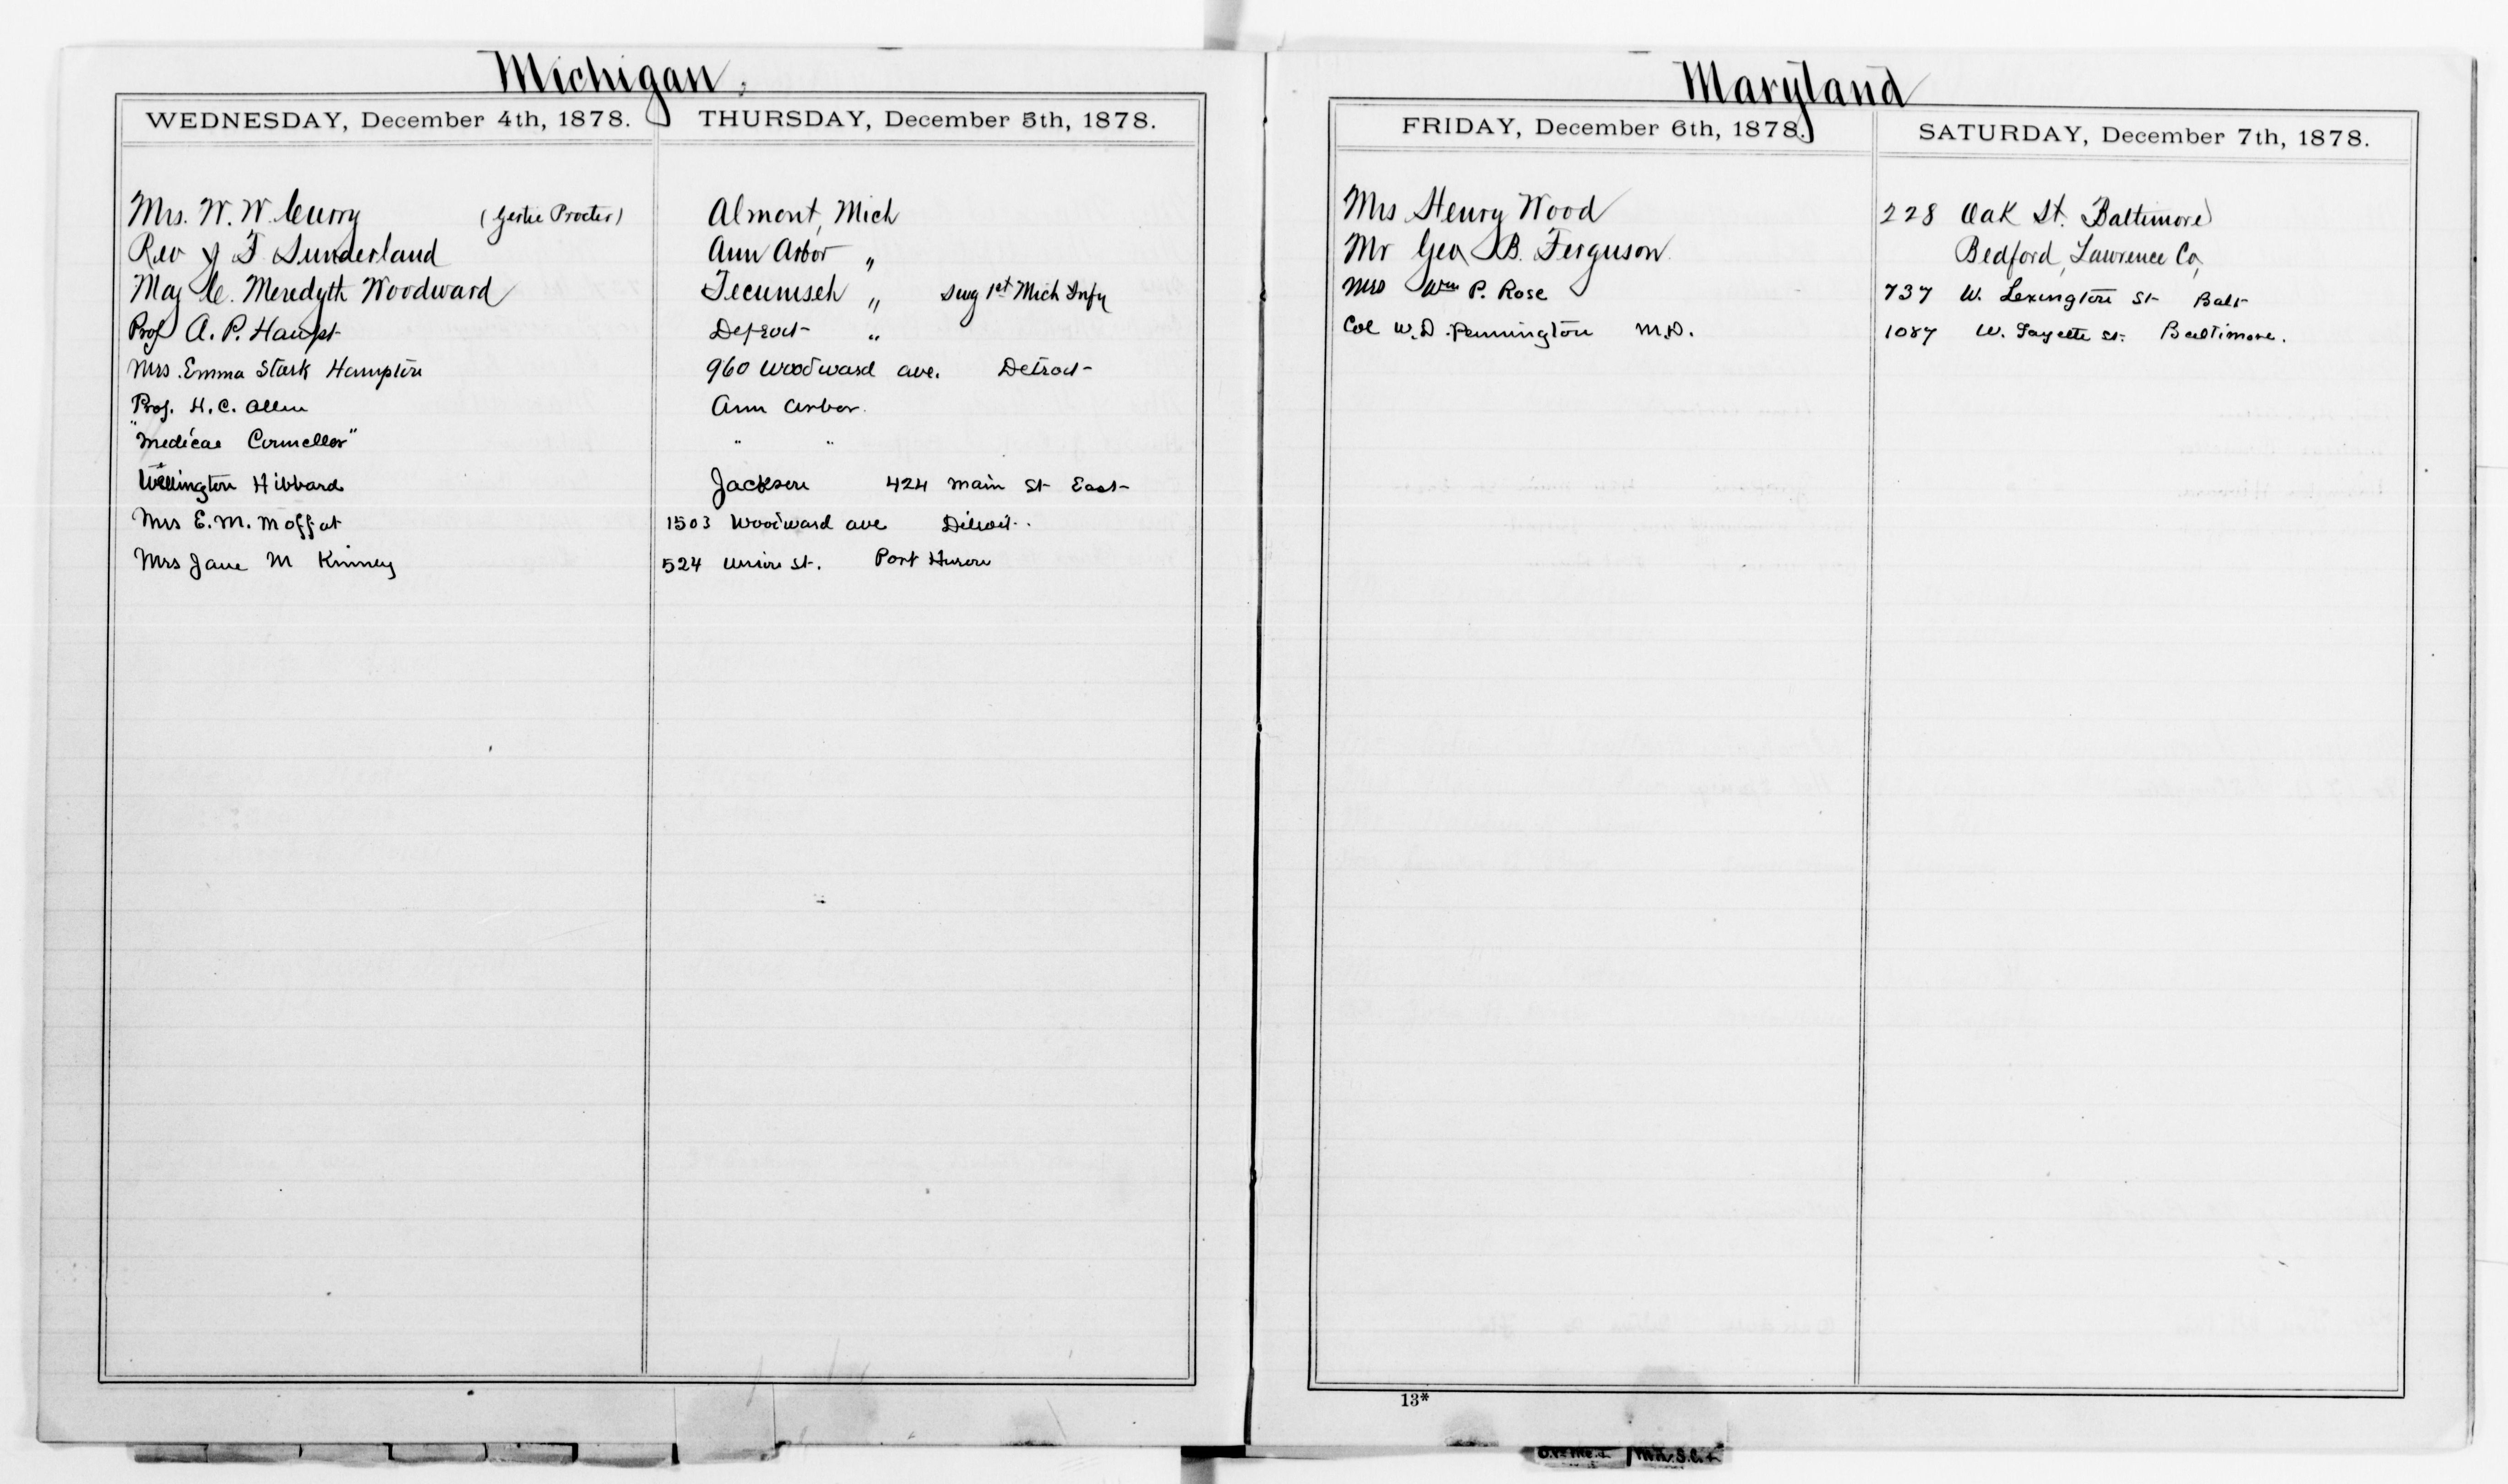 Michigan
WEDNESDAY, December 4th, 1878. THURSDAY, December 5th, 1878.
Mrs. W. W. Curry (Gertie Procter) Almont, Mich
Rev J T Sunderland Ann Arbor "
Maj C. Meredyth Woodward Tecumseh " Surg 1st Mich Infy
Prof A. P. Haupt Detroit "
Mrs. Emma Stark Hampton 960 Woodward ave. Detroit
Prof. H. C. Allen Ann Arbor
"Medical Councellor" " "
Wellington Hibbard Jackson 424 Main St East
Mrs E. M. Moffat 1503 Woodward ave Detroit.
Mrs Jane M Kinney 524 Union St. Port Huron
Maryland
FRIDAY, December 6th, 1878. SATURDAY, December 7th, 1878.
Mrs Henry Wood 228 Oak St. Baltimore
Mr Geo B. Ferguson Bedford, Lawrence Co,
Mrs Wm P. Rose 737 W. Lexington St Balt
Col W. D. Pennington M.D. 1087 W. Fayette St. Baltimore.
13*